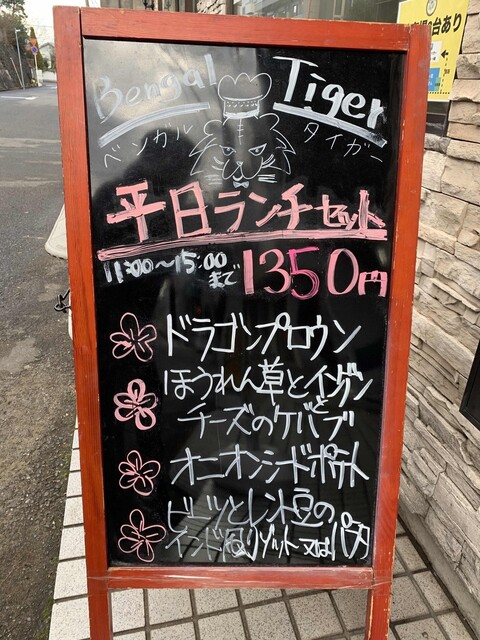 Bengal Tiger
ベンガル タイガー
平日ランチセット
11:00～15:00まで 1350円
ドラゴンプロウン
ほうれん草とインゲンと
チーズのケバブ
オニオンシードポテト
ビーツとレンズ豆の
インド風リゾット又はパスタ
台あり